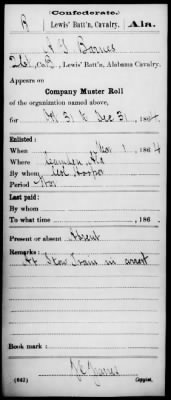 (Confederate.)
B | Lewis' Batt'n, Cavalry. | Ala.
Barnes
Co. B, Lewis' Batt'n, Alabama Cavalry.
Appears on
Company Muster Roll
of the organization named above,
for Oct 31 to Dec 31, 1864.
Enlisted:
When Nov 1, 1864
Where Camden, Ala
By whom Col Hooper
Period War
Last paid:
By whom
To what time , 186 .
Present or absent Absent
Remarks:
At in arrest
Book mark:
(642) Copyist.